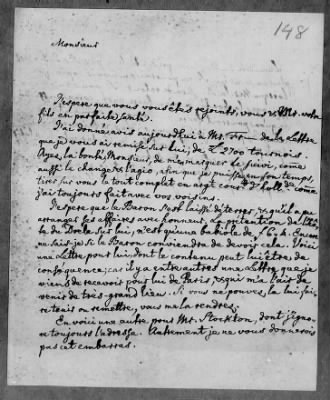 148
Monsieur
J'espere que vous vous êtes rejoints, vous & Mr. votre
fils en parfaite santé.
J'ai donné avis aujourd'hui à Mr. de la Lettre
que je vous ai remise sur lui, de 2700 tournois.
Ayez la bonté, Monsieur, de me marquer le suivi, come
aussi le change & l'agio, afin que je puisse en son temps,
tirer sur vous le tout complet en argt court d'holl. come
j'ai toujours fait avec vos voisins.
J'espere que le Baron s'est laissé déterrer, & qu'il a pu
arranger ses affaires avec honneur. La prétention de l'hôte
du Doele sur lui, n'est qu'une babiole de f 6
sais-je si le Baron conviendra de devoir cela. Voici
une Lettre pour lui, dont le contenu peut lui être de
conséquence; car il y a entre autres une Lettre que je
viens de recevoir pour lui de Paris, & qui m'a l'air de
venir de très-grand lieu. Si vous ne pouvez, la lui faire
tenir ou remettre, vous me la rendrez.
En voici une autre pour Mr. Stockton, dont j'igno-
re toujours l'adresse. Autrement je ne vous donnerois
pas cet embarras.